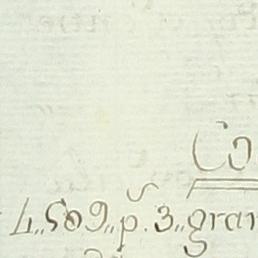 Co
4,,509,,p.^s 3,,gran